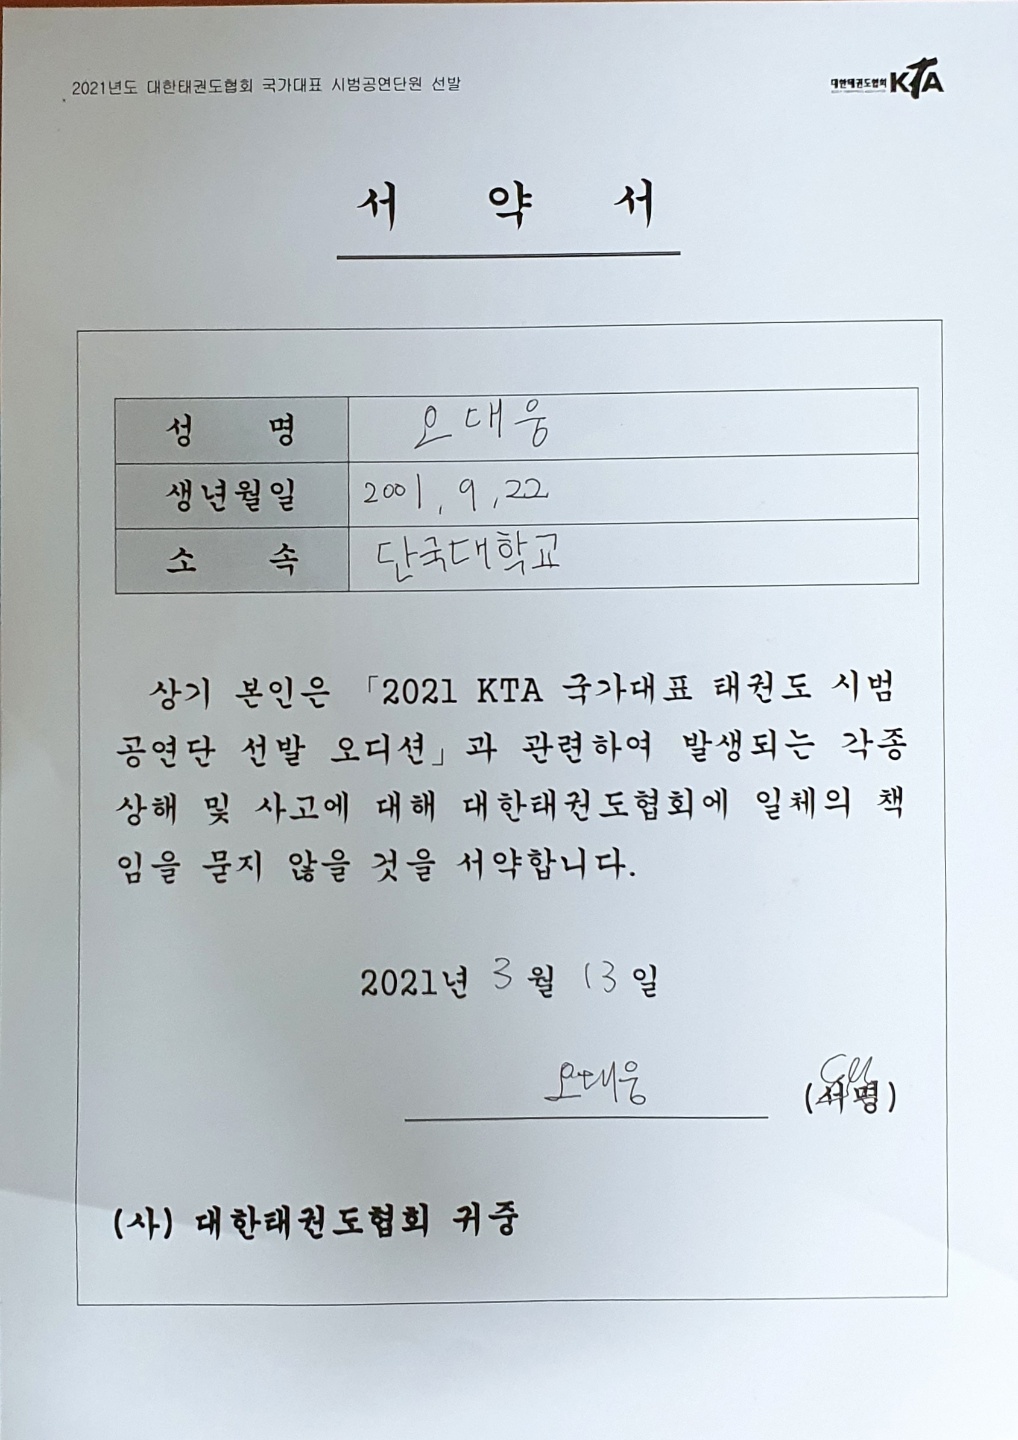 2021년도 대한태권도협회 국가대표 시범공연단원 선발
대한태권도협회 KTA
서 약 서
성 명 오대웅
생년월일 2001. 9. 22
소 속 단국대학교
상기 본인은 「2021 KTA 국가대표 태권도 시범
공연단 선발 오디션」과 관련하여 발생되는 각종
상해 및 사고에 대해 대한태권도협회에 일체의 책
임을 묻지 않을 것을 서약합니다.
2021년 3월 13일
오대웅 (서명)
(사) 대한태권도협회 귀중